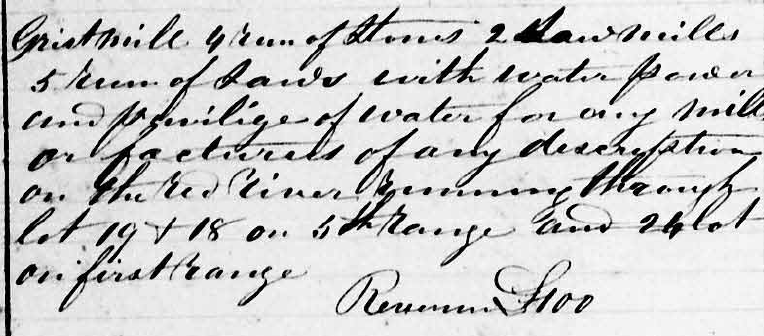 Grist mill 4 run of Stones 2 Sawmills
5 run of Saws with water power
and privilige of water for any mill
or facturies of any description
on the red river running through
lot 19 & 18 on 5th range and 24 lot
on first range
Revenue £100